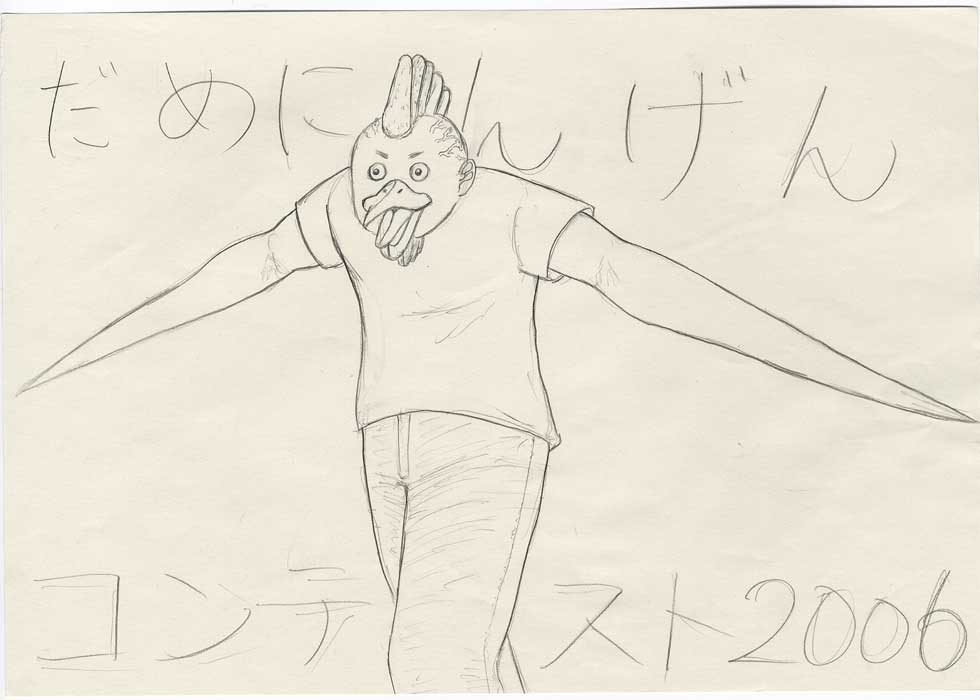 だめにんげん
コンテスト2006